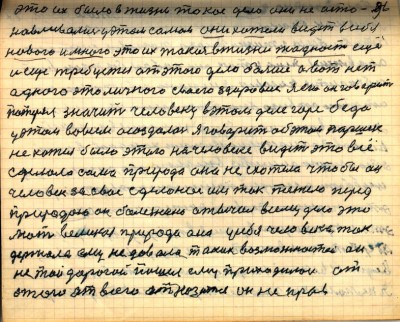 это их было в жизни такое дело они не оста-
навливались у этом самом они хотели видит в себя
нового и много это их такая в жизни жадность еще
и еще требуется от этого дело больше а вот нет
одного это личного своего здоровие я его он говорит
потерял значит человеку в этом деле горе беда
у этом вовсем оссоздалои я говорит об этом
не хотел было этого на человеке видит это всё
сделало сама природа она не схотела чтобы он
человек за свое сделоное им так тежело перед
природою он болезнено отвичал всему дело это
мать великая природа она у себя человека так
держала ему не довала таких возможностей он
не той дорогой пошел ему приходилои от
этого от всего он не прав